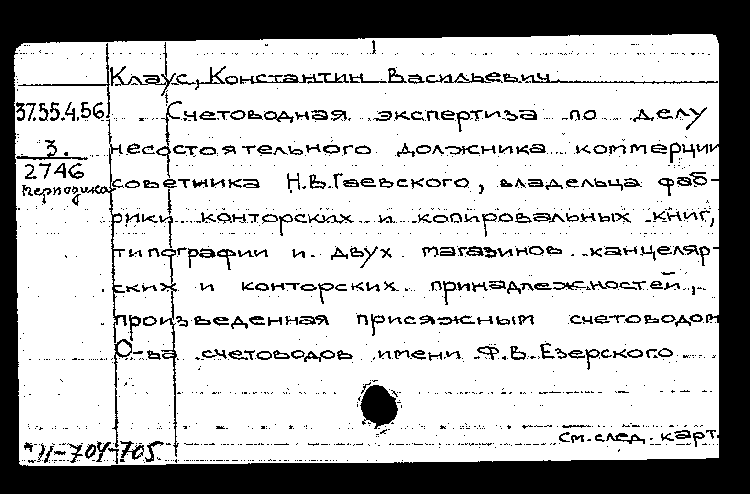 Клаус, Константин Васильевич
37.55.4.56. Счетоводная экспертиза по делу
3. несостоятельного должника коммерции
2746 советника Н.В.Гаевского, владельца фаб-
периодика
рики конторских и копировальных книг,
типографии и двух магазинов канцеляр-
ских и конторских принадлежностей,
произведенная присяжным счетоводом
О-ва счетоводов имени Ф.В.Езерского
см. след. карт.
11-704-705